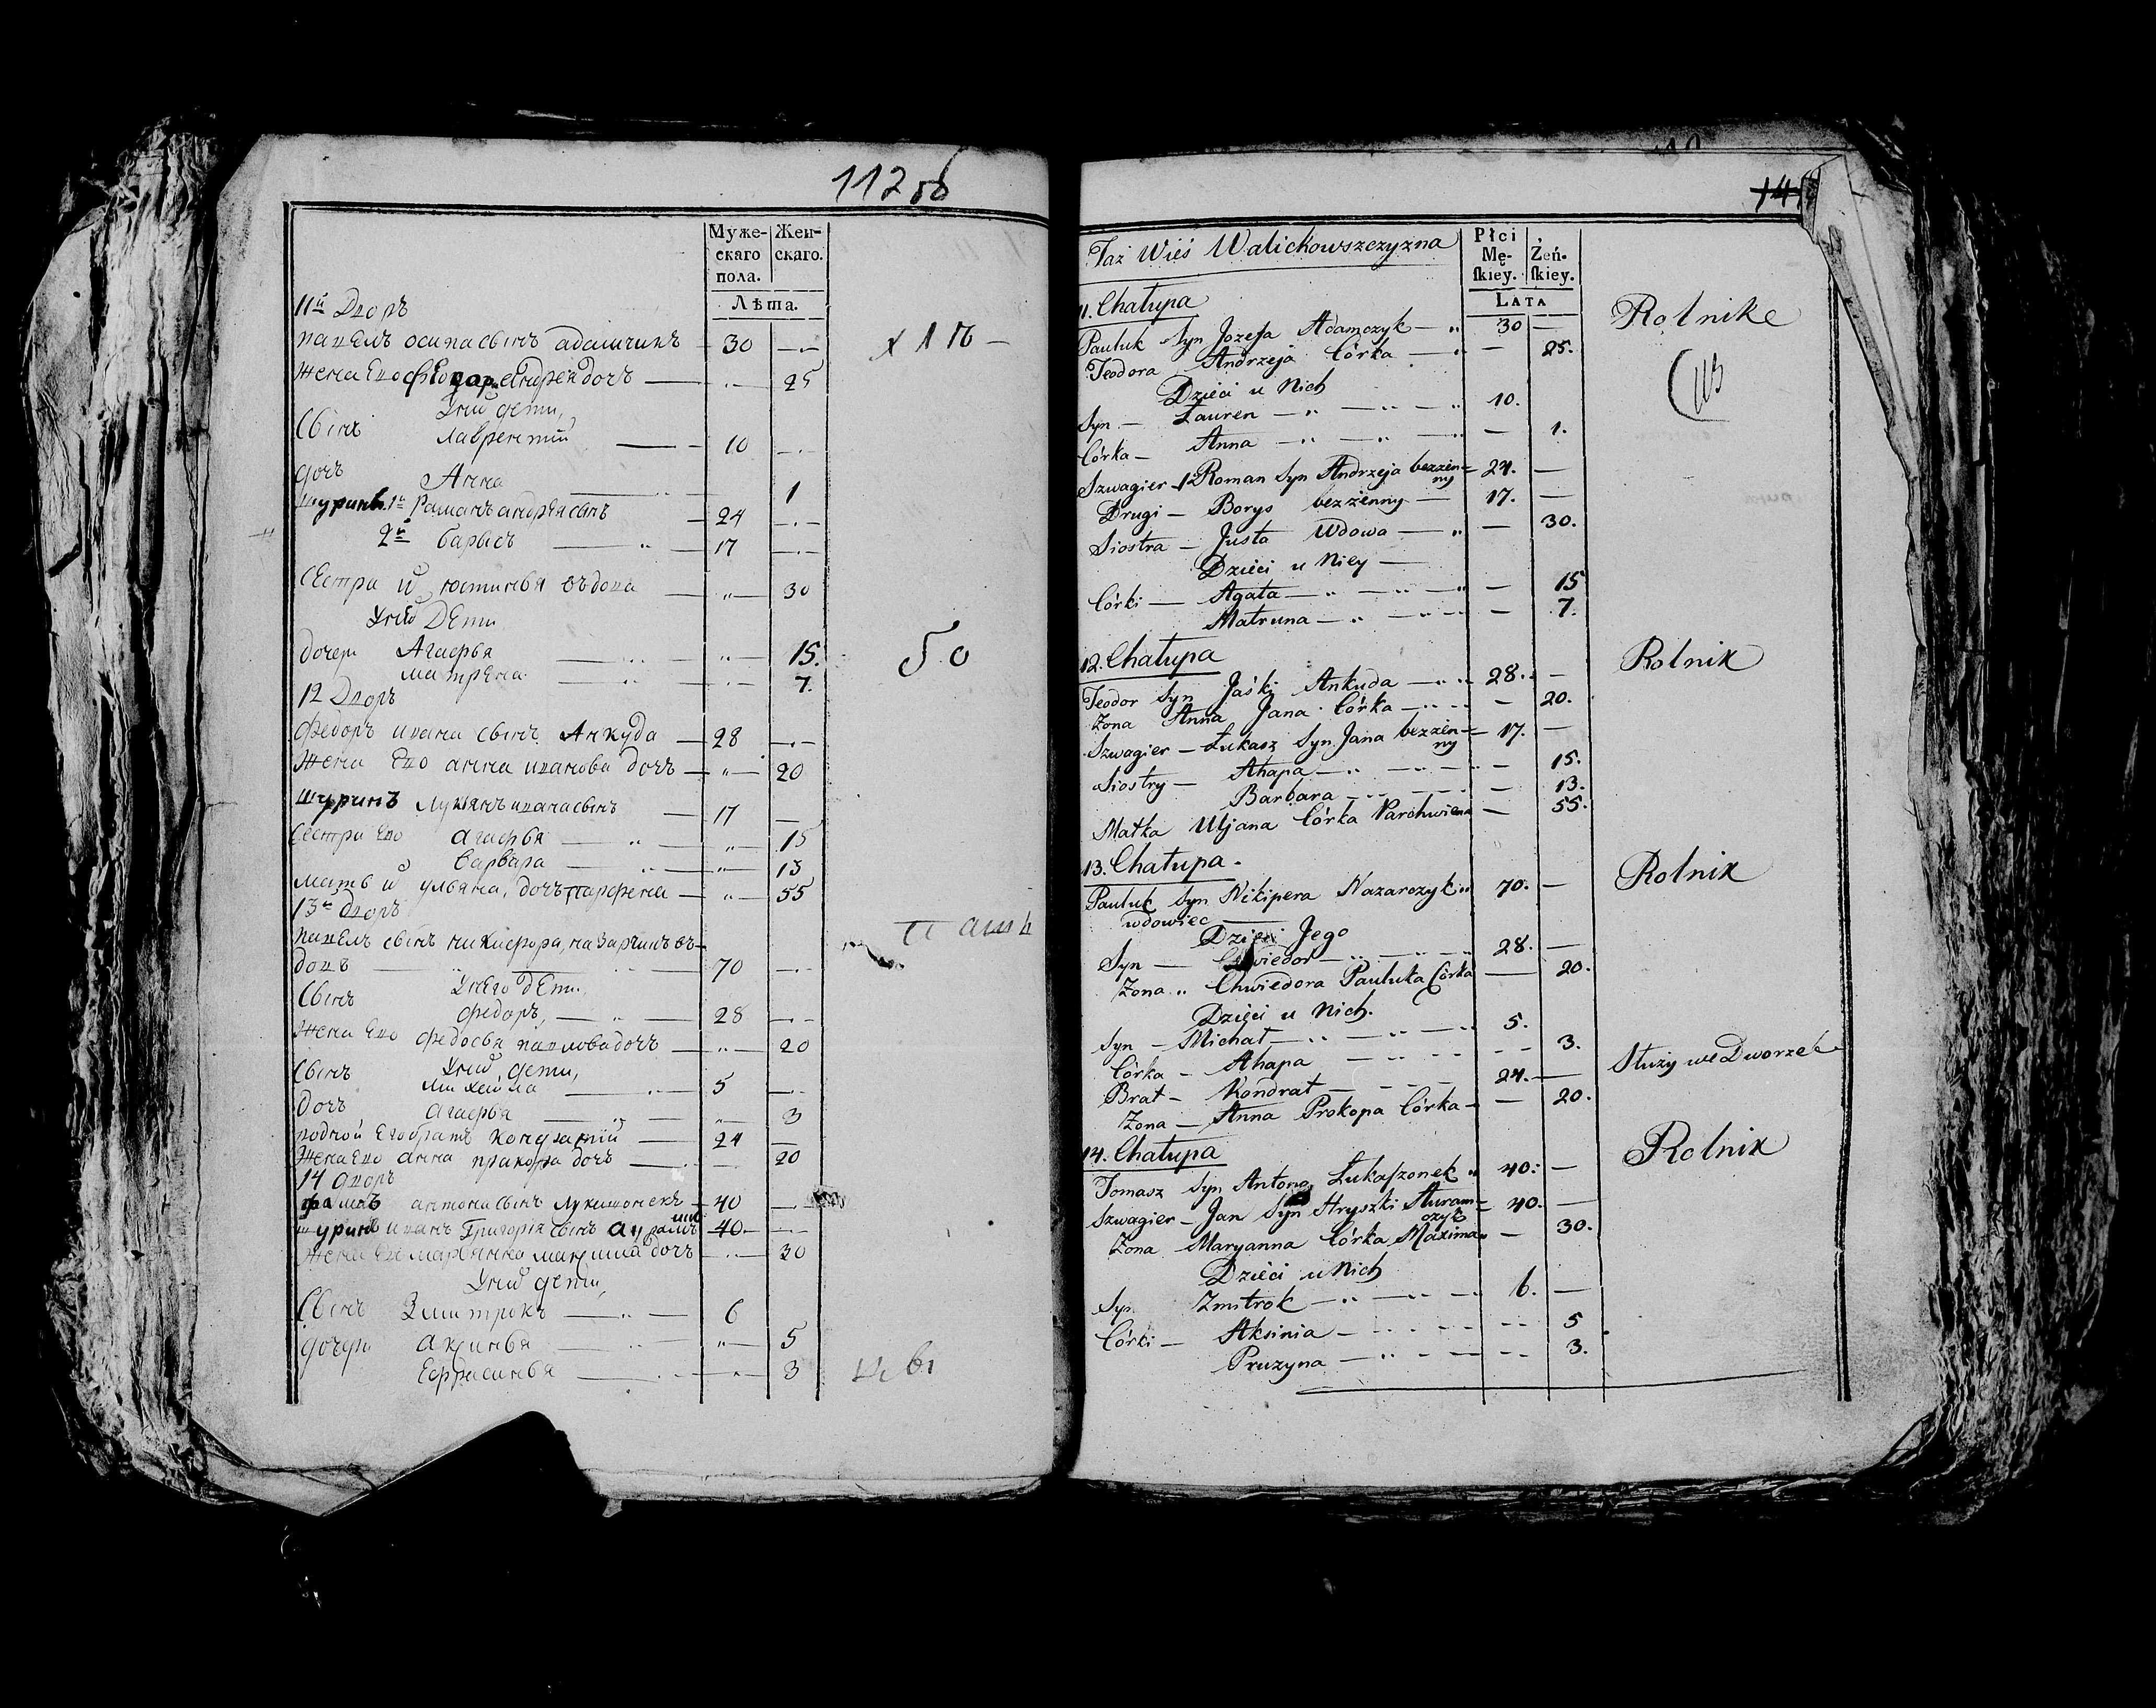 112 об
Муже-
скаго
пола.
Жен-
скаго.
Лѣта.
11й Дворъ
павелъ осипа сынъ адамчикъ — 30 —
Жена Его Феодора андрея дочъ — 25
У них дети,
Сынъ Лаврентий — 10 —
дочъ Анна — 1
шуринъ 1й Раманъ андрея сынъ — 24 —
2й барысъ — 17 —
сестра их юстинья въдова — 30
У ней Дети
дочери Агафья — 15.
матрена — 7.
12 Дворъ
федоръ ивана сынъ Анкуда — 28 —
Жена Его анна иванова дочъ — 20
шуринъ Лукянъ ивана сынъ — 17 —
Сестри Его агафья — 15
варвара — 13
мать их ульяна, дочъ парфена — 55
13й Дворъ
павелъ сынъ никифора, назарчикъ въ-
довъ — 70 —
У него дети
Сынъ федоръ, — 28 —
Жена Его федосья павлова дочъ — 20
У них дети,
Сынъ михейла — 5 —
Дочъ агафья — 3
родной Его братъ кондратий — 24 —
Жена Его анна пракопа дочъ — 20
14 дворъ
фамъ антона сынъ лукашонекъ — 40 —
шуринъ иванъ Григория сынъ аурамчик — 40 —
Жена Его марьянна максима дочъ — 30
У них дети,
Сынъ Змитрокъ — 6
дочери аксинья — 5
Ефрасинья — 3
50
14
Taż Wieś Walichowszczyzna
Płci
Mę-
skiey.
Żeń-
skiey.
Lata
11. Chałupa
Rolnik
Pauluk Syn Jozefa Adamczyk — 30 —
Teodora Andrzeja Córka — 25.
Dzieci u Nich
Syn — Łauren — 10.
Córka — Anna — 1.
Szwagier 1. Roman Syn Andrzeja bezżen-
ny 24. —
Drugi — Borys bezżenny — 17. —
Siostra — Justa Wdowa — 30.
Dzieci u Niey —
Córki — Agata — 15
Matruna — 7.
12. Chałupa
Rolnik
Teodor Syn Jaśki Ankuda — 28. —
Żona Anna Jana Córka — 20.
Szwagier — Łukasz Syn Jana bezżen-
ny 17. —
Siostry — Ahapa — 15.
Barbara — 13.
Matka Uljana Córka Parchwiena — 55.
13. Chałupa
Rolnik
Pauluk Syn Nikipera Nazarczyk 70. —
wdowiec
Dzieci Jego
Syn — Chwiedor — 28. —
Żona Chwiedora Pauluka Córka — 20.
Dzieci u Nich.
Syn — Michał — 5.
Córka — Ahapa — 3.
Brat — Kondrat — 24. —
Służy we Dworze
Żona — Anna Prokopa Córka — 20.
14. Chałupa
Rolnik
Tomasz Syn Antona Łukaszonek 40. —
Szwagier — Jan Syn Hryszki Auram-
czyk 40. —
Żona Maryanna Córka Maxima — 30.
Dzieci u Nich
Syn Zmitrok — 6. —
Córki — Aksinia — 5
Pruzyna — 3.